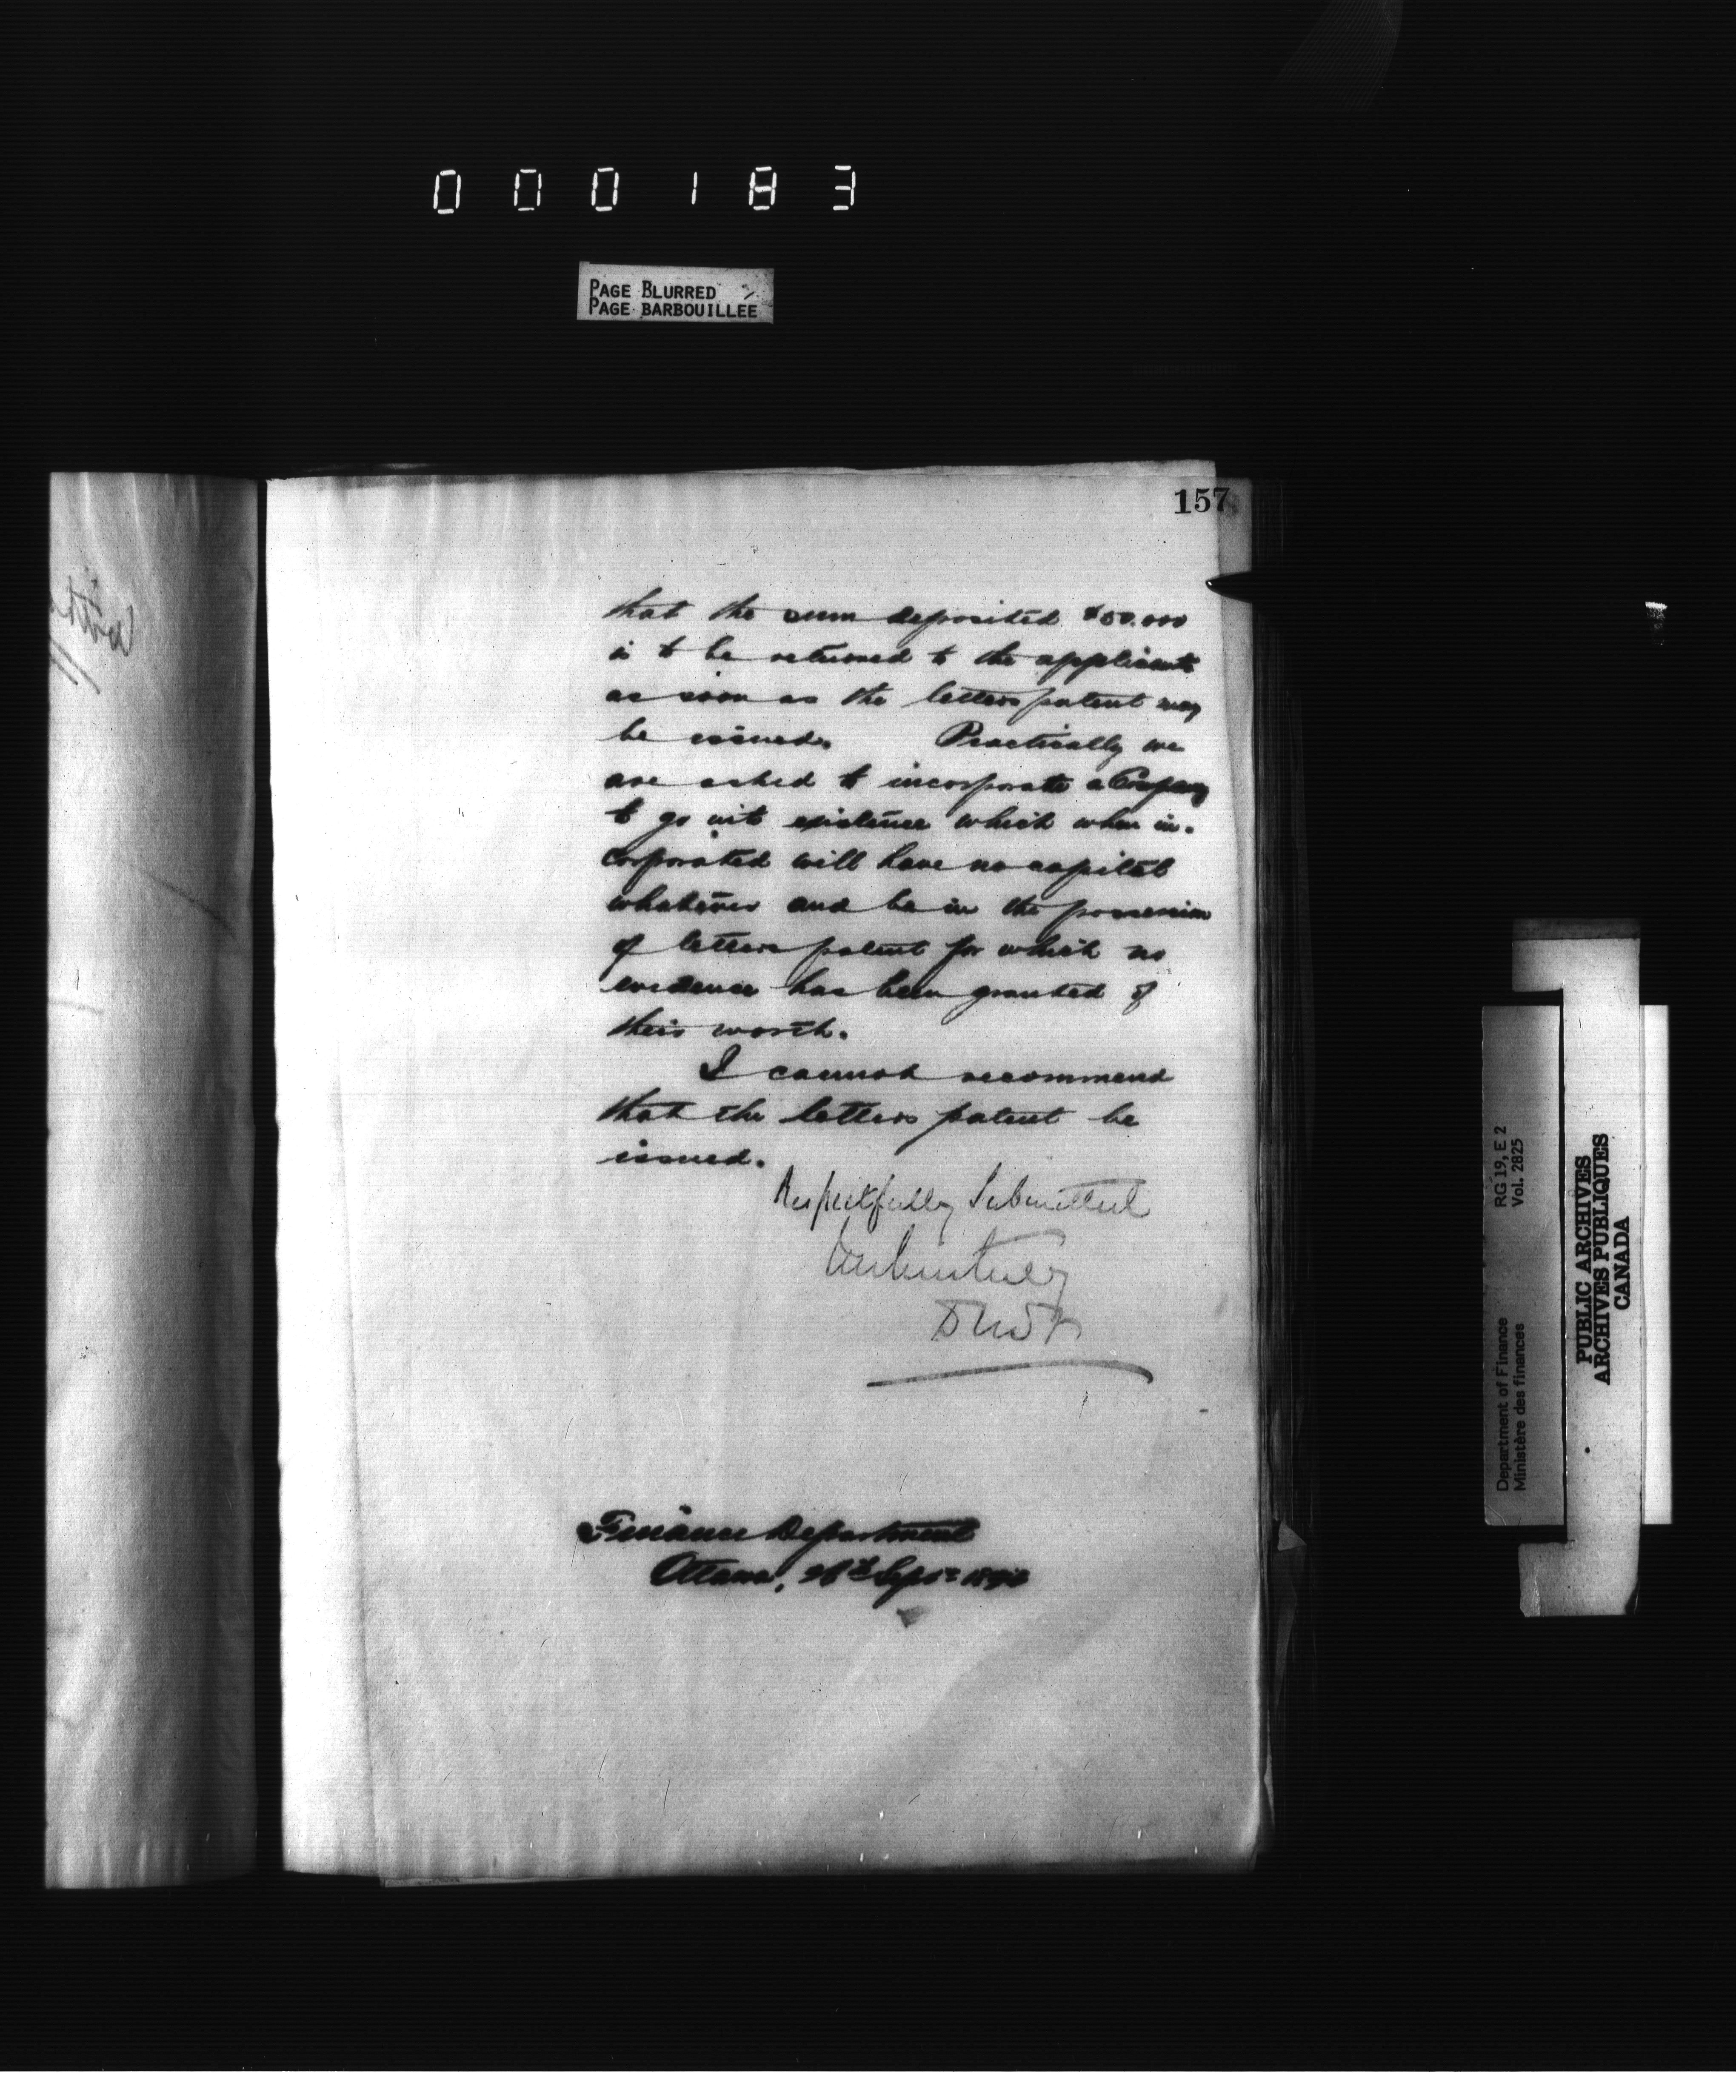 000183
PAGE BLURRED
PAGE BARBOUILLEE
157
that the sum deposited $50.000
is to be returned to the applicants
as soon as the letters patent may
be issued. Practically we
are asked to incorporate a Company
to go into existence which when in-
corporated will have no capital
whatever and be in the possession
of letters patent for which no
evidence has been granted of
their worth.
I cannot recommend
that the letters patent be
issued.
Respectfully Submitted
Finance Department
Ottawa, 26th Sept.
RG 19, E 2
Vol. 2825
Department of Finance
Ministère des finances
PUBLIC ARCHIVES
ARCHIVES PUBLIQUES
CANADA